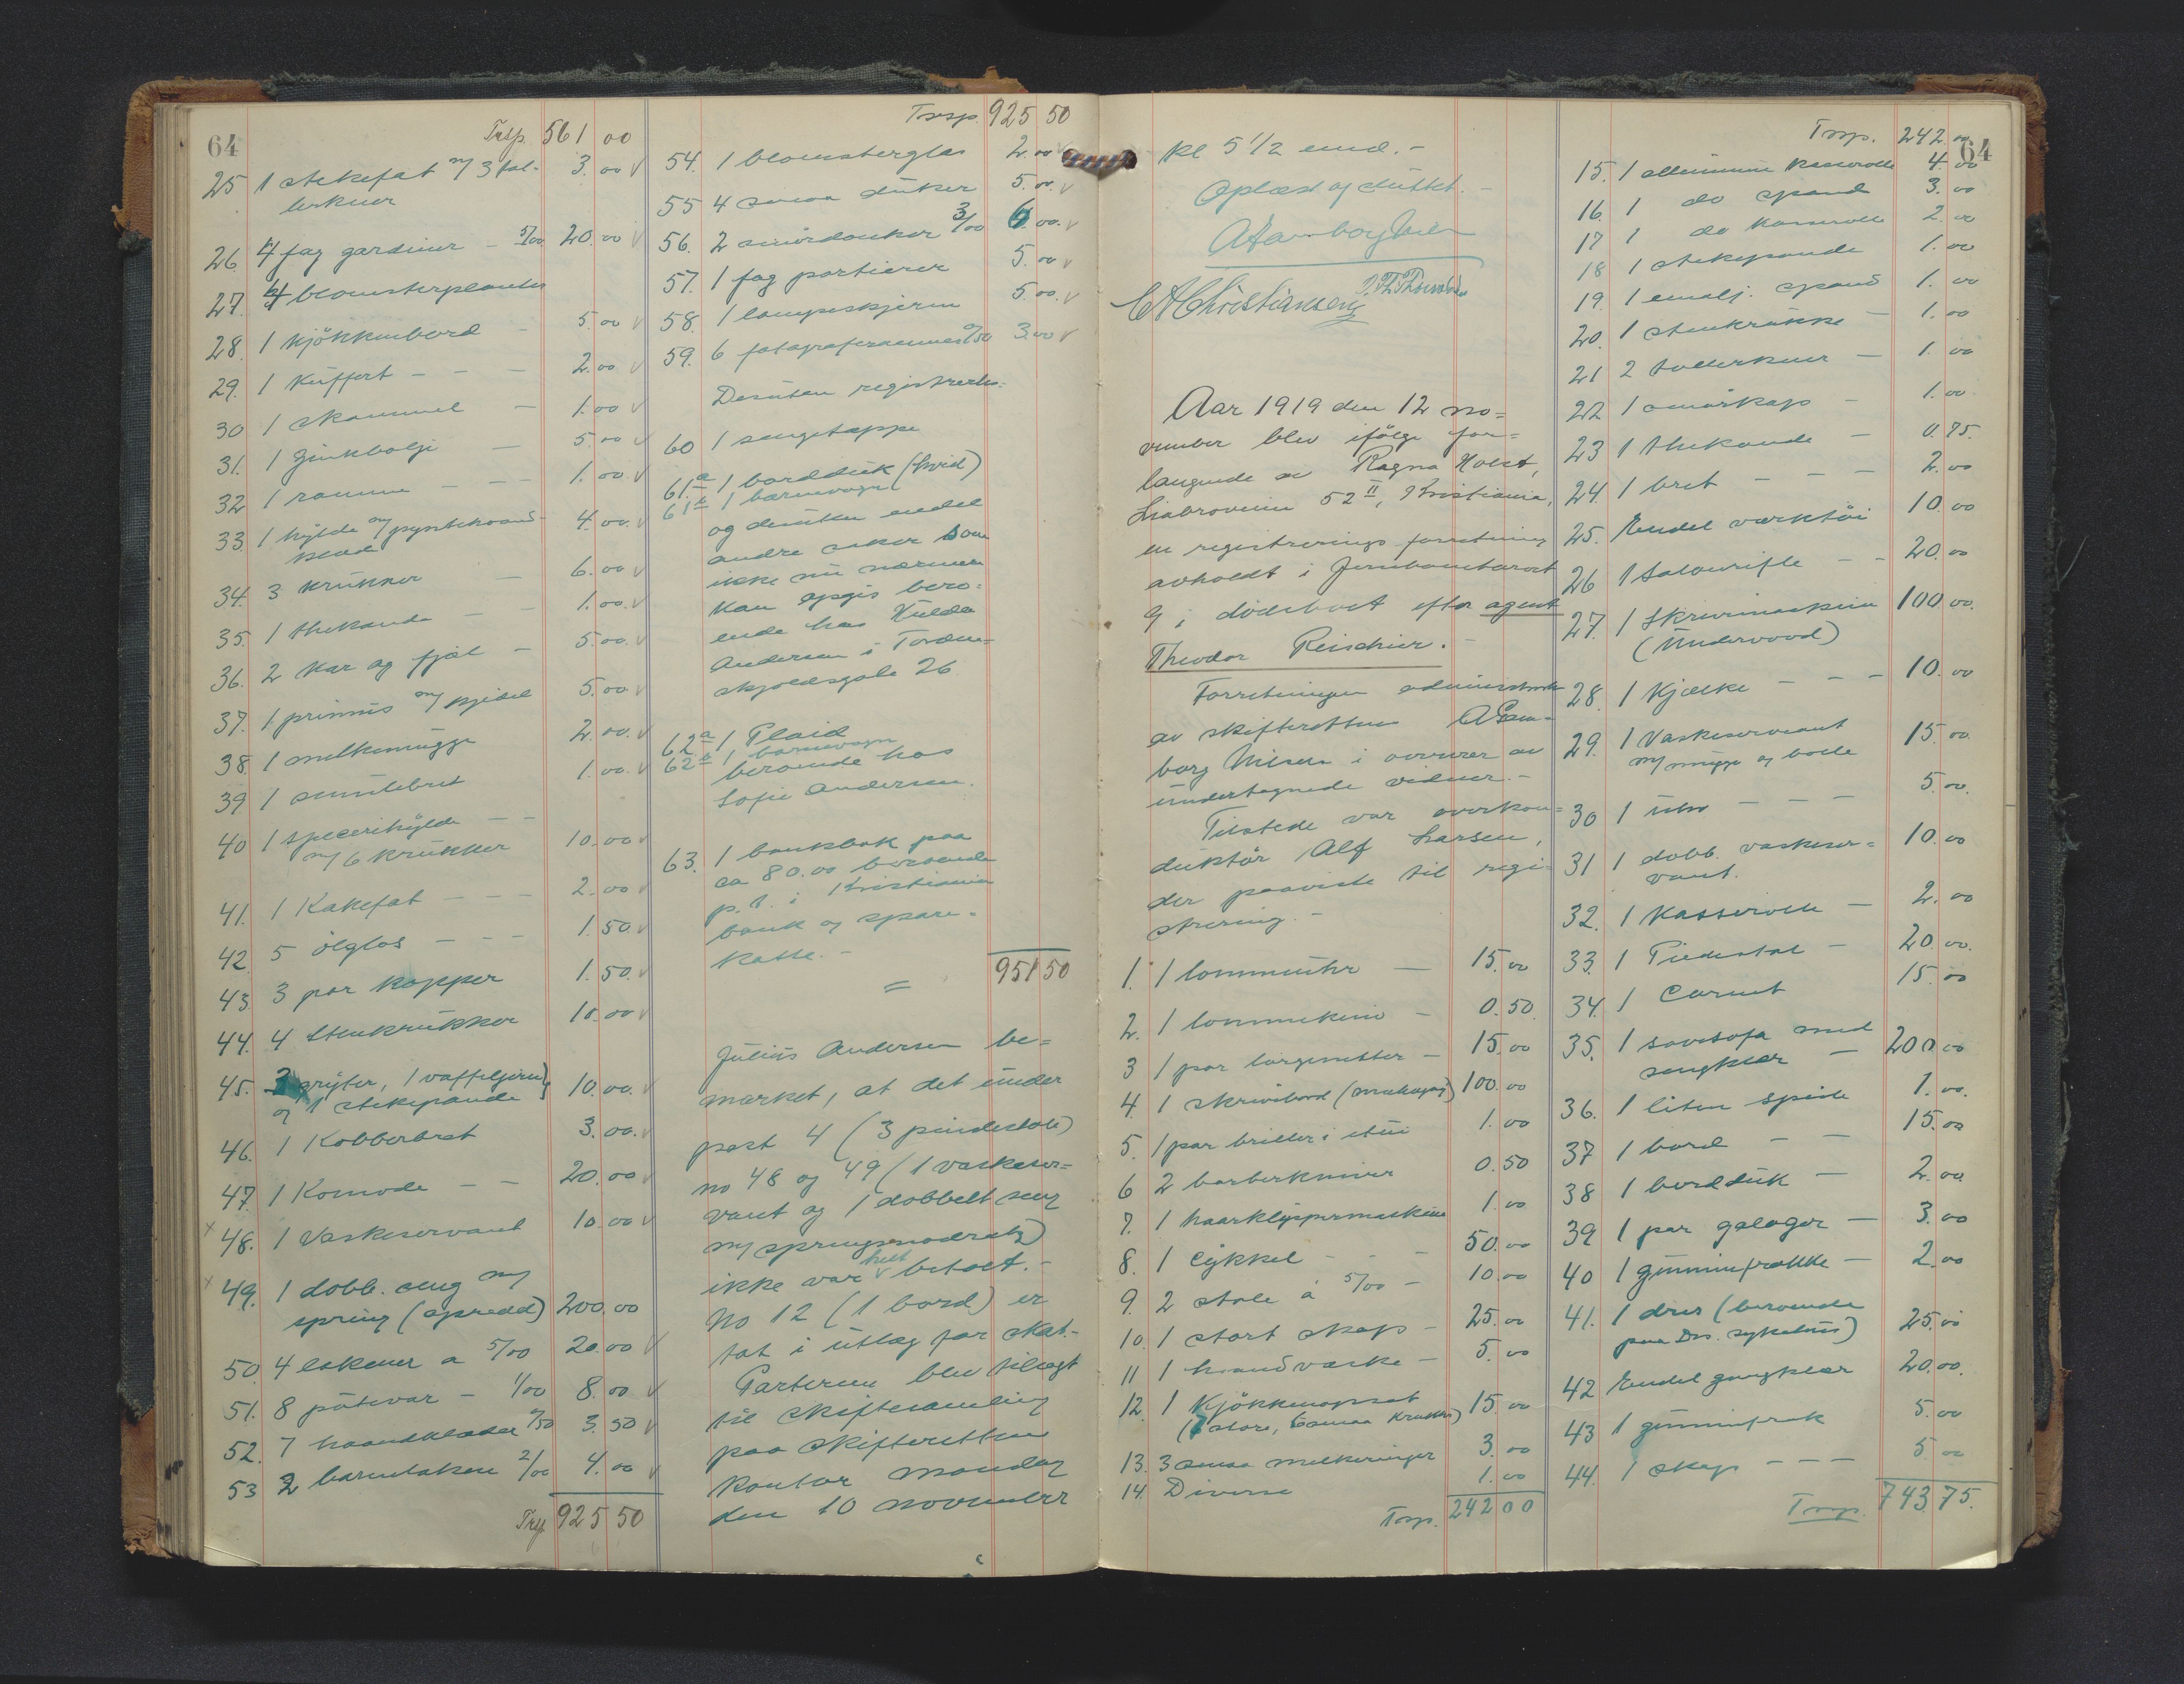 64
Trsp. 561 00
25 1 stekefat m/ 3 tal- 3.00
lerkner
26 4 fag gardiner - 5/00 20.00
27. 4 blomsterplanter
28. 1 kjøkkenbord - 5.00
29. 1 Kuffert - - - 2.00
30 1 skammel - 1.00
31. 1 Zinkbalje - 5.00
32 1 ramme - - - 1.00
33. 1 hylde m/ pyntehaand-
klæde 4.00
34. 3 krukker - 6.00
35. 1 thekande - - 1.00
36. 2 kar og fjæl - 5.00
37. 1 primus m/ kjedel 5.00
38. 1 melkemugge 2.00
39 1 smulebret 1.00
40 1 specerihylde - -
m/ 6 krukker 10.00
41. 1 Kakefat - - - 2.00
42. 5 ølglas - - - 1.50
43 3 par kopper 1.50
44. 4 Stenkrukker 10.00
45. 3 gryter, 1 vaffeljern,
og 1 stekepande 10.00
46. 1 Kobberbret 3.00
47. 1 Komode - - 20.00
x 48. 1 Vaskeservant 10.00
x 49. 1 dobb. seng m/
spring (opredd) 200.00
50. 4 lakener a 5/00 20.00
51. 8 putevar - 1/00 8.00
52. 7 haandklæder 0/50 3.50
53 2 barnelaken 2/00 4.00
Trsp 925 50
Trsp. 925 50
54. 1 blomsterglas 2.00
55 4 smaa duker 5.00
56. 2 smørdanker 3/00 6.00
57. 1 fag portierer 5.00
58. 1 lampeskjerm 5.00
59. 6 fotograframmer 0/50 3.00
Desuten registrertes:
60 1 sengetæppe
61.a 1 bordduk (hvid)
61 b 1 barnevogn
og desuten endel
andre saker som
ikke nu nærmere
kan opgis bero-
ende hos Hulda
Andersen i Torden-
skjoldsgate 26
62 a 1 Plaid
62 b 1 barnevogn
beroende hos
Sofie Andersen.
63. 1 bankbok paa
ca 80.00 beroende
p.t. i Kristiania
bank og spare-
kasse. -
= 951 50
Julius Andersen be-
merket, at det under
post 4 (3 pindestole)
no 48 og 49 (1 vaskeser-
vant og 1 dobbelt seng
m/ springmadrats)
ikke var helt betalt. -
No 12 (1 bord) er
tat i utlæg for skat. -
Parterne blev tilsagt
til skiftesamling
paa skifterettens
kontor mandag
den 10 november
kl 5 1/2 emd. -
Oplæst og sluttet. -
A Hamborg Nilsen
C A Christiansen
Aar 1919 den 12 no-
vember blev ifølge for-
langende av Ragna Holst,
Liabroveien 52 II, Kristiania,
en registrerings forretning
avholdt i Jernbanetorvet
9, i dødsboet efter agent
Theodor Reischier. -
Forretningen administrertes
av skifterettens A Ham-
borg Nilsen i overvær av
undertegnede vidner. -
Tilstede var overkon-
duktør Alf Larsen,
der paaviste til regi-
strering. -
1. 1 lommeuhr - 15.00
2. 1 lommekniv - 0.50
3 1 par lorgnetter - 15.00
4. 1 skrivebord (mahogny) 100.00
5. 1 par briller i etui 1.00
6 2 barberkniver 0.50
7. 1 haarklippermaskine 1.00
8. 1 Cykkel - - - 50.00
9. 2 stole a 5/00 - 10.00
10. 1 stort skap - 25.00
11 1 haandvæske - 5.00
12. 1 Kjøkkenopsat 15.00
(7 store, 6 smaa krukker)
13. 3 smaa melkeringer 3.00
14. Diverse 1.00
Trsp. 242 00
Trsp. 242 00
64
15. 1 alluminium kasserolle 4.00
16. 1 do spand 3.00
17 1 do kasserolle 2.00
18 1 stekepande 1.00
19 1 emalj. spand 1.00
20. 1 stenkrukke - 1.00
21 2 tallerkner - 1.00
22 1 smørkop - 1.00
23 1 thekande - 0.75.
24. 1 bret - - - 2.00
25. Endel verktøi 10.00
26 1 Salonrifle - - 20.00
27. 1 Skrivmaskin 100.00
(Underwood)
28. 1 Kjælke - - - 10.00
29. 1 Vaskeservant 15.00
m/ mugge og bolle
30 1 uhr - - - 5.00
31 1 dobb. vaskeser- 10.00
vant.
32. 1 Kasserolle - 2.00
33. 1 Piedestal - 20.00
34. 1 15.00
35. 1 sovesofa med
sengklær - 200.00
36. 1 liten speile 1.00
37 1 bord - - 15.00
38 1 bordduk - 2.00
39 1 par galoger - 3.00
40 1 gummifrakke - 2.00
41. 1 dres (beroende
paa Drs. sykehus) 25.00
42 Endel gangklær 20.00
43 1 gummifrak 5.00
44. 1 skap - - - 5.00
Trsp. 743 75.